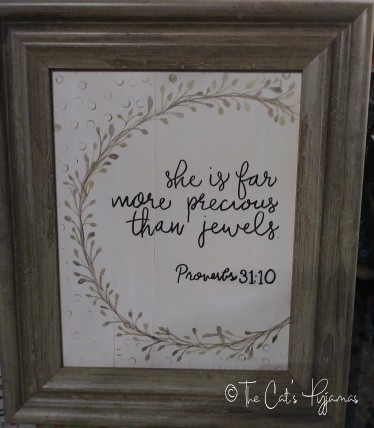 she is far
more precious
than jewels.
Proverbs 31:10
© The Cat's Pyjamas